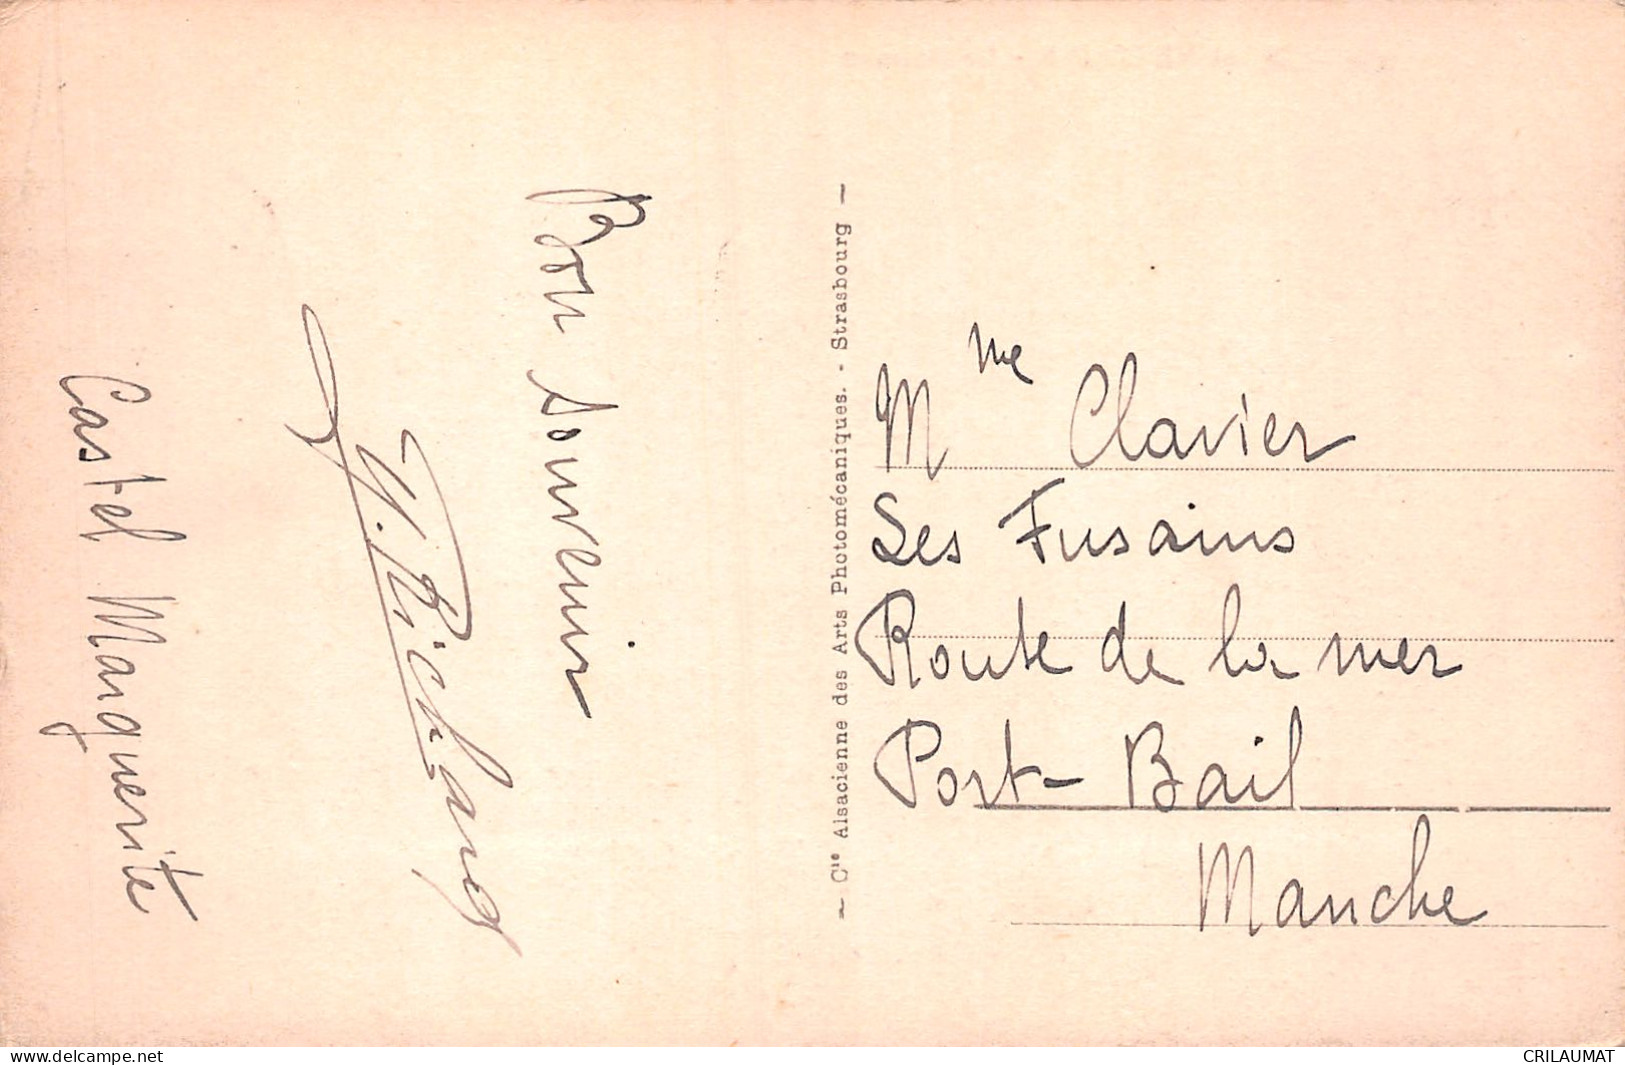 Bon souvenir
Castel Marguerite
— Cie Alsacienne des Arts Photomécaniques. - Strasbourg —
Mme Clavier
Les Fusains
Route de la mer
Port-Bail
Manche
www.delcampe.net
CRILAUMAT